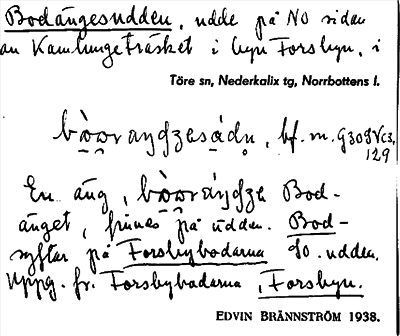 Bodängesudden, udde på NO sidan
av Kamlungeträsket i byn Forsbyn, i
Töre sn, Nederkalix tg, Norrbottens l.
bf. m. G309Vc3,
129
En äng, Bod-
änget, finnes på udden. Bod-
syftar på Forsbybodarna SO. udden.
Uppg. fr. Forsbybodarna, Forsbyn.
EDVIN BRÄNNSTRÖM 1938.